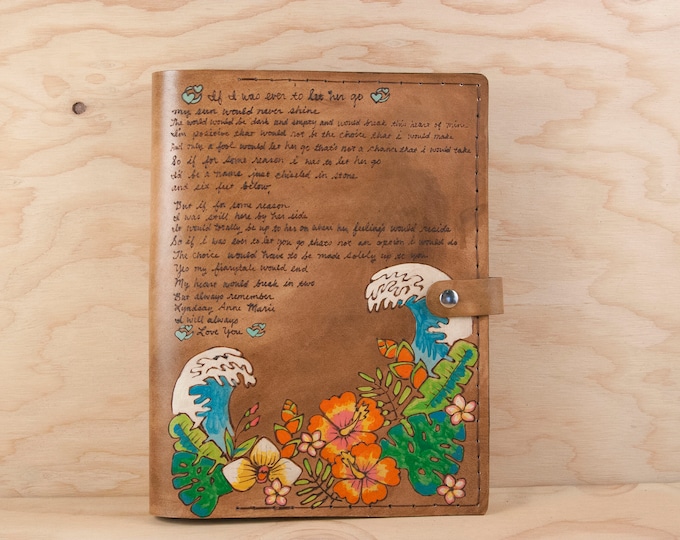 If I was ever to let her go
my sun would never shine
The world would be dark and empty and would break this heart of mine
I'm positive that would not be the choice that i would make
And only a fool would let her go that's not a chance that i would take
So if for some reason i was to let her go
I'd be a name just chiseled in stone
and six feet below,
But if for some reason
I was still here by her side
It would totally be up to her on where her feelings would reside
So if i was ever to let you go thats not an option i would do
The choice would have to be made solely up to you
Yes my fairytale would end
My heart would break in two
But always remember
Lyndsay Anne Marie
I will always
Love You